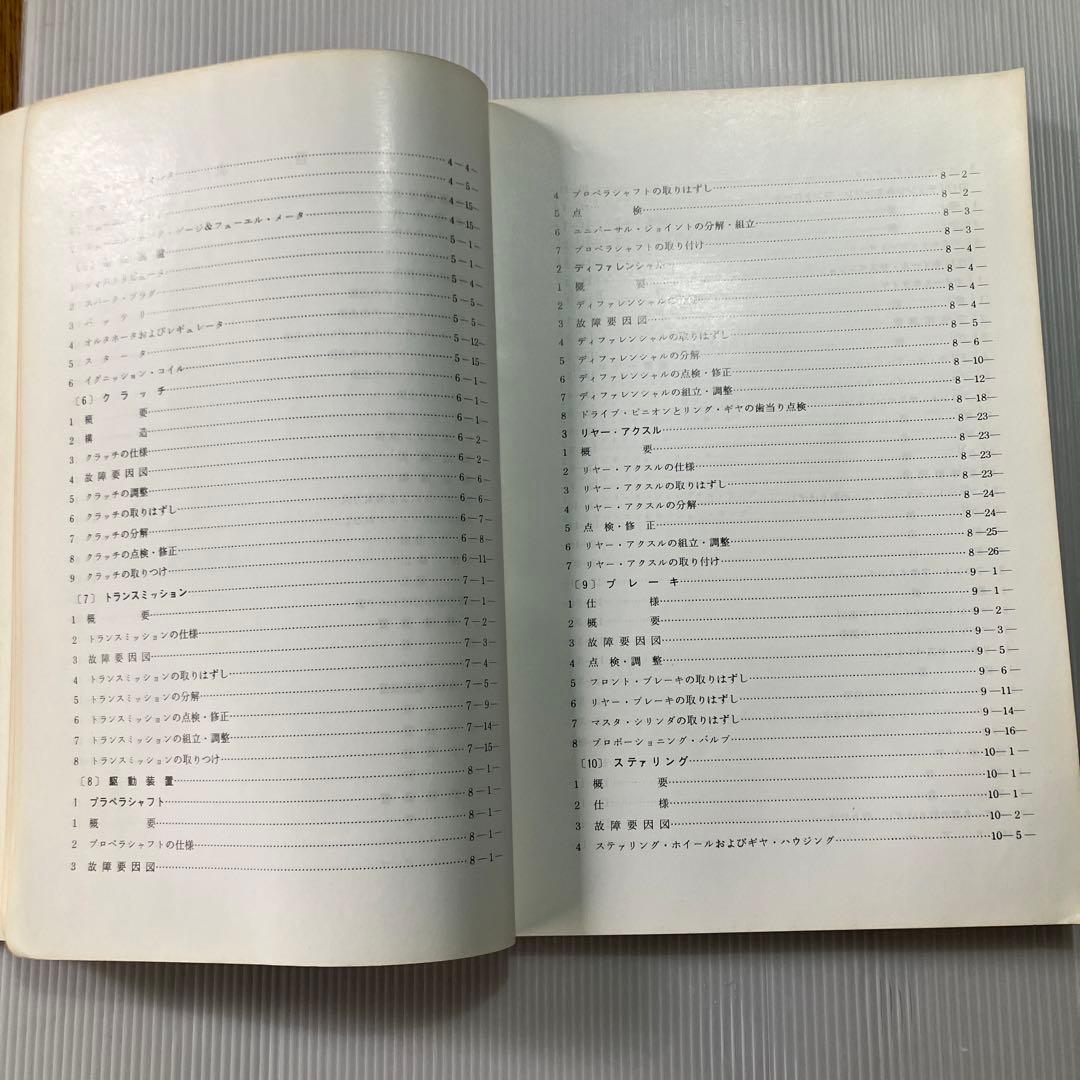 4—4—
4—5—
4—15—
ゲージ&フューエル・メータ 4—15—
5—1—
1 ディストリビュータ 5—1—
2 スパーク・プラグ 5—4—
3 バッテリ 5—5—
4 オルタネータおよびレギュレータ 5—5—
5 スタータ 5—12—
6 イグニッション・コイル 5—15—
〔6〕クラッチ 6—1—
1 概要 6—1—
2 構造 6—1—
3 クラッチの仕様 6—2—
4 故障要因図 6—2—
5 クラッチの調整 6—6—
6 クラッチの取りはずし 6—6—
7 クラッチの分解 6—7—
8 クラッチの点検・修正 6—8—
9 クラッチの取りつけ 6—11—
〔7〕トランスミッション 7—1—
1 概要 7—1—
2 トランスミッションの仕様 7—2—
3 故障要因図 7—3—
4 トランスミッションの取りはずし 7—4—
5 トランスミッションの分解 7—5—
6 トランスミッションの点検・修正 7—9—
7 トランスミッションの組立・調整 7—14—
8 トランスミッションの取りつけ 7—15—
〔8〕駆動装置 8—1—
1 プラペラシャフト 8—1—
1 概要 8—1—
2 プロペラシャフトの仕様 8—1—
3 故障要因図 8—1—
4 プロペラシャフトの取りはずし 8—2—
5 点検 8—2—
6 ユニバーサル・ジョイントの分解・組立 8—3—
7 プロペラシャフトの取り付け 8—3—
2 ディファレンシャル 8—4—
1 概要 8—4—
2 ディファレンシャルの 8—4—
3 故障要因図 8—4—
4 ディファレンシャルの取りはずし 8—5—
5 ディファレンシャルの分解 8—6—
6 ディファレンシャルの点検・修正 8—10—
7 ディファレンシャルの組立・調整 8—12—
8 ドライブ・ピニオンとリング・ギヤの歯当り点検 8—18—
3 リヤー・アクスル 8—23—
1 概要 8—23—
2 リヤー・アクスルの仕様 8—23—
3 リヤー・アクスルの取りはずし 8—23—
4 リヤー・アクスルの分解 8—24—
5 点検・修正 8—24—
6 リヤー・アクスルの組立・調整 8—25—
7 リヤー・アクスルの取り付け 8—26—
〔9〕ブレーキ 9—1—
1 仕様 9—1—
2 概要 9—2—
3 故障要因図 9—3—
4 点検・調整 9—5—
5 フロント・ブレーキの取りはずし 9—6—
6 リヤー・ブレーキの取りはずし 9—11—
7 マスタ・シリンダの取りはずし 9—14—
8 プロポーショニング・バルブ 9—16—
〔10〕ステァリング 10—1—
1 概要 10—1—
2 仕様 10—1—
3 故障要因図 10—2—
4 ステァリング・ホイールおよびギヤ・ハウジング 10—5—